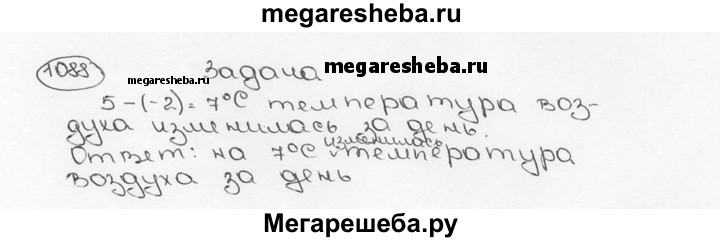 megaresheba.ru
1088 Задача
megaresheba.ru megaresheba.ru
5-(-2)=7°C температура воз-
духа изменилась за день.
изменилась
Ответ: на 7°C температура
воздуха за день
Мегарешеба.ру